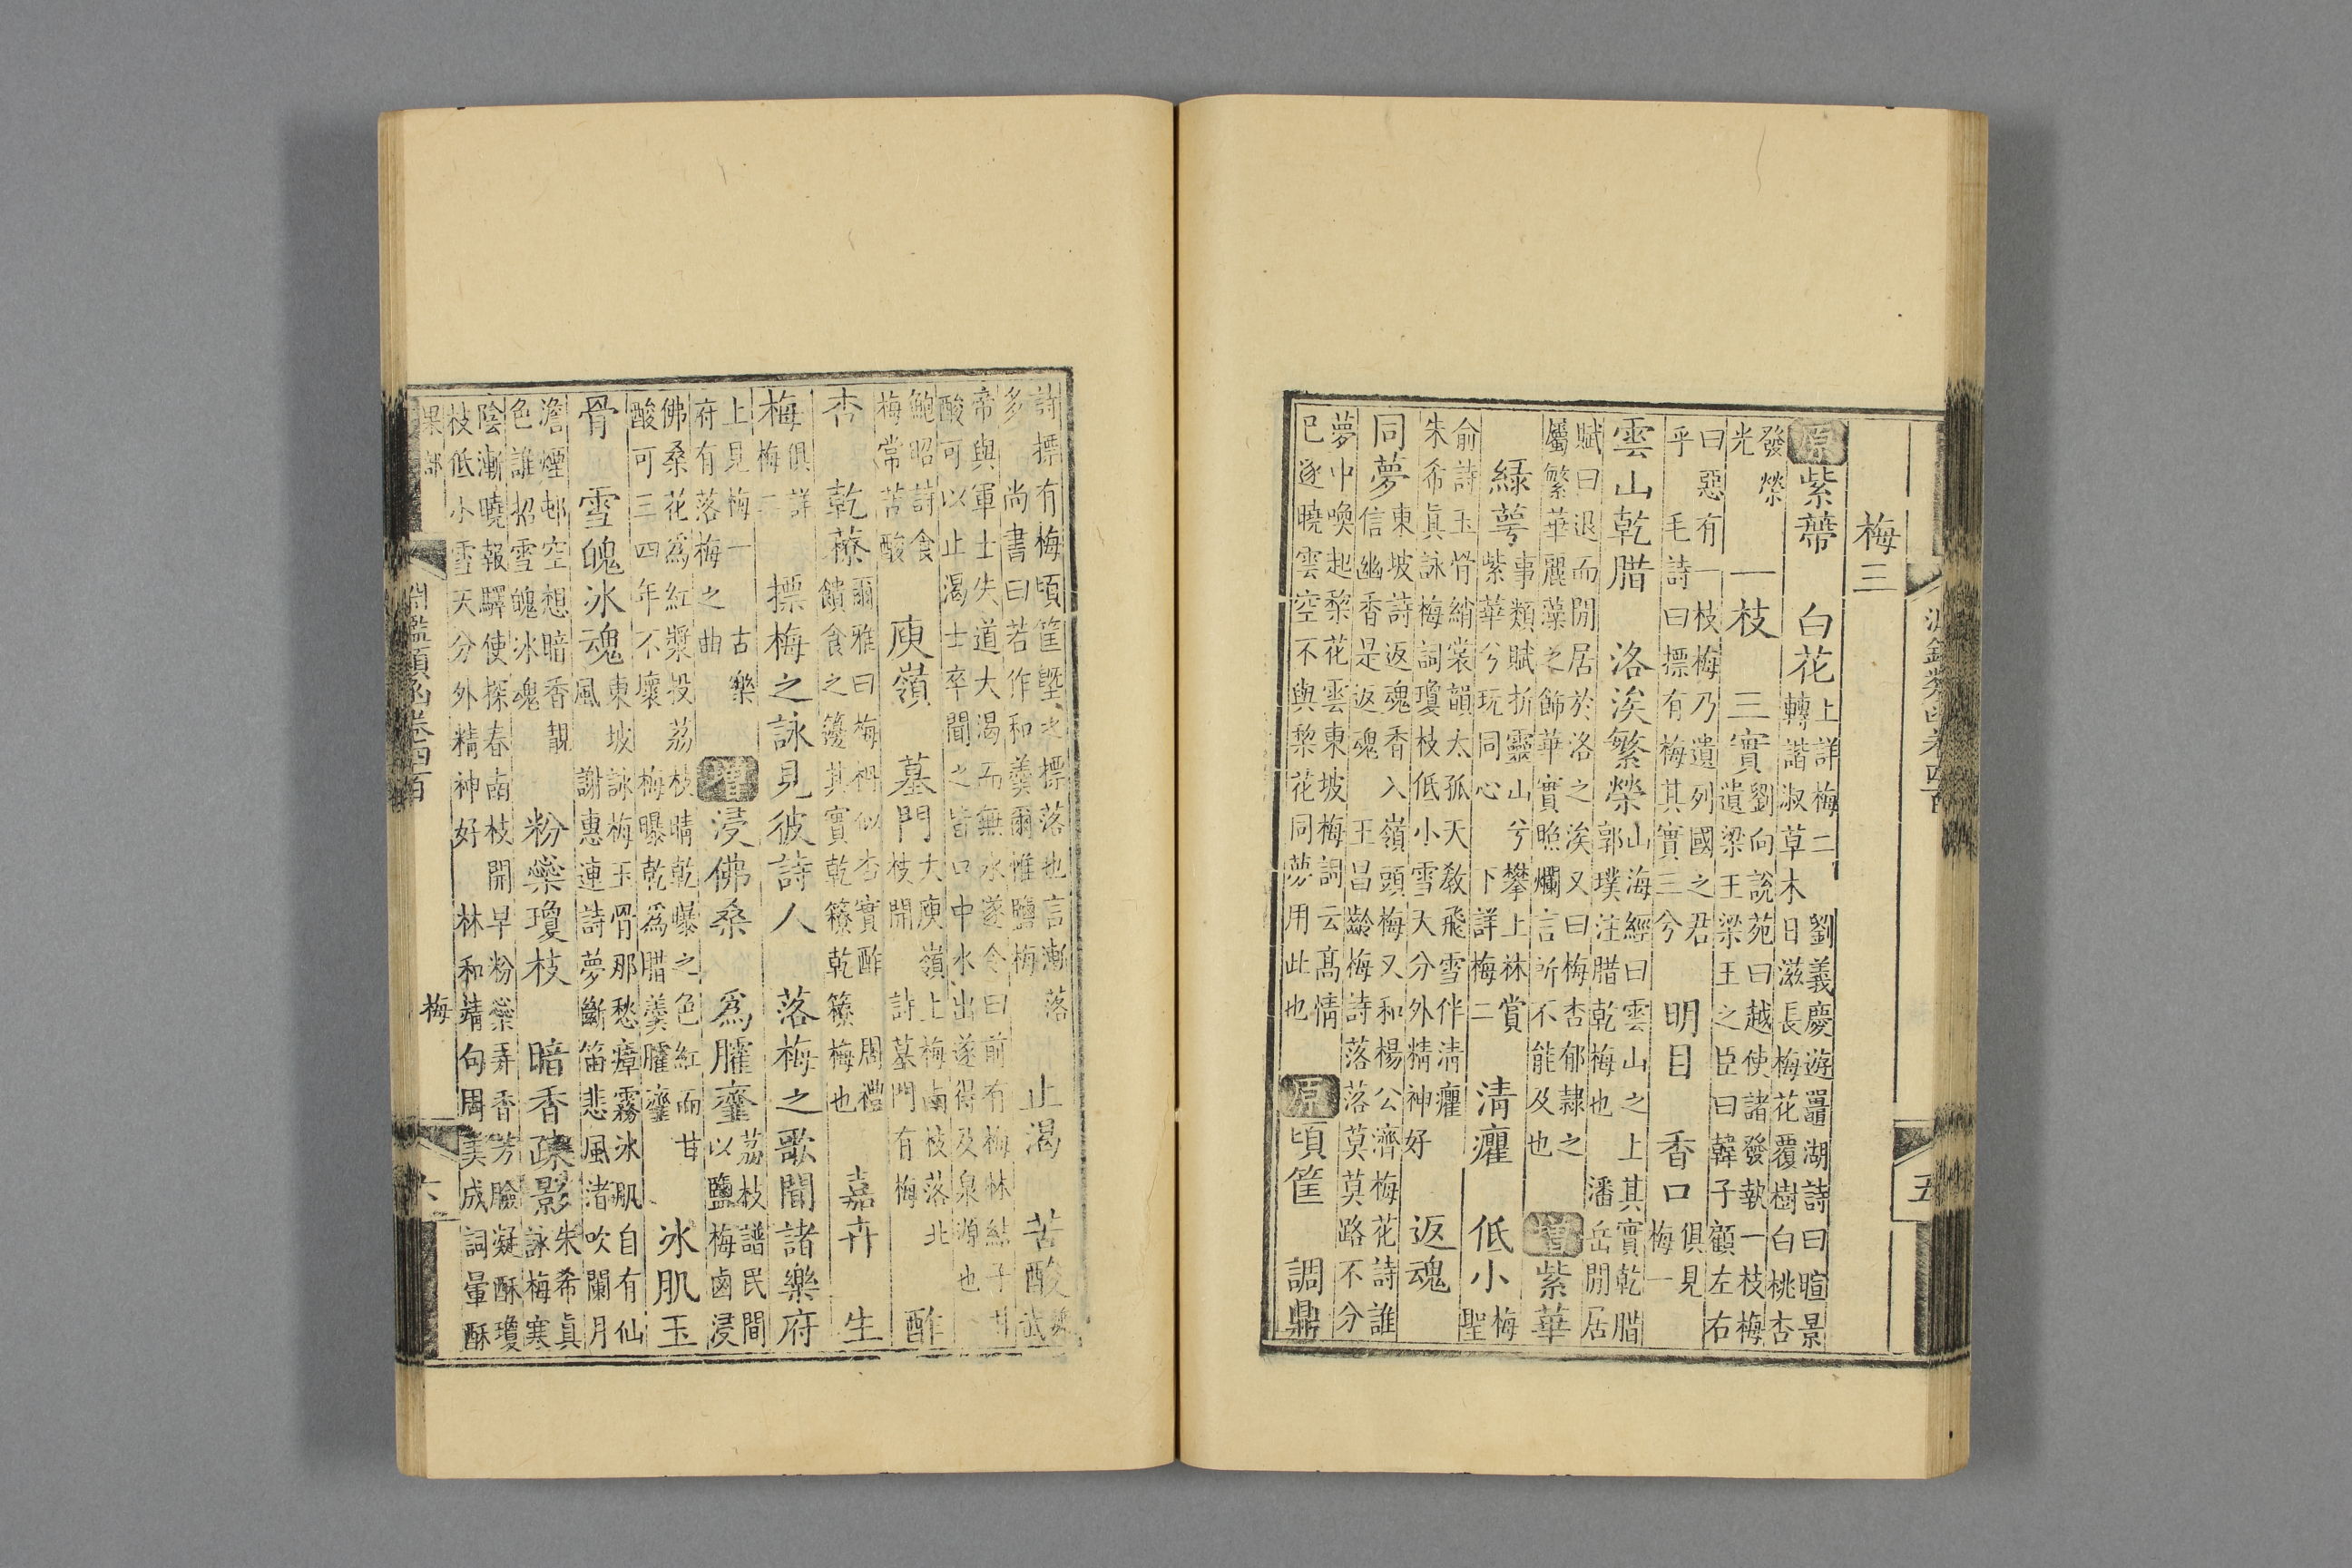 淵鑑類函卷四百 五
梅三
原紫蔕 白花上詳梅二 劉義慶遊鼉湖詩曰暄景轉諧淑草木日滋長梅花覆樹白桃杏
發榮光 一枝 三實劉向說苑曰越使諸發執一枝梅遺梁王梁王之臣曰韓子顧左右
曰惡有一枝梅乃遺列國之君乎毛詩曰摽有梅其實三兮 明目 香口俱見梅一
雲山乾腊 洛涘繁榮山海經曰雲山之上其實乾腊郭璞注腊乾梅也 潘岳閒居
賦曰退而閒居於洛之涘又曰梅杏郁隸之屬繁華麗藻之飾華實照爛言所不能及也 增紫華
綠萼事類賦折靈山兮攀上林賞紫華兮玩同心 下詳梅二 清癯 低小梅聖
俞詩玉骨綃裳韻太孤天教飛雪伴清癯朱希眞詠梅詞瓊枝低小雪天分外精神好 返魂
同夢東坡詩返魂香入嶺頭梅又和楊公濟梅花詩誰信幽香是返魂 王昌齡梅詩落落莫莫路不分
夢中喚起黎花雲東坡梅詞云髙情已逐曉雲空不與黎花同夢用此也 原頃筐 調鼎
詩摽有梅頃筐塈之摽落也言漸落多 尚書曰若作和羹爾惟鹽梅 止渴 苦酸魏武
帝與軍士失道大渴而無水遂令曰前有梅林結子甘酸可以止渴士卒聞之皆口中水出遂得及泉源也
鮑昭詩食梅常苦酸 庾嶺 墓門大庾嶺上梅南枝落北枝開 詩墓門有梅 酢
杏 乾䕩爾雅曰梅枏似杏實酢 周禮饋食之籩其實乾䕩乾䕩梅也 嘉卉 生
梅俱詳梅二 摽梅之詠見彼詩人 落梅之歌聞諸樂府
上見梅一 古樂府有落梅之曲 增浸佛桑 爲臛虀荔枝譜民間以鹽梅鹵浸
佛桑花爲紅漿投荔枝晴乾曝之色紅而甘酸可三四年不壞 梅曝乾爲腊羹臛虀 冰肌玉
骨 雪魄冰魂東坡詠梅玉骨那愁瘴霧冰肌自有仙風 謝惠連詩夢斷笛悲風渚吹闌月
澹煙邨空想暗香靚色誰招雪魄冰魂 粉蘂瓊枝 暗香疎影朱希眞詠梅寒
陰漸曉報驛使探春南枝開早粉蘂弄香芳臉凝酥瓊枝低小雪天分外精神好 林和靖句周美成詞暈酥
果部 梅
淵鑑類函卷四百 六